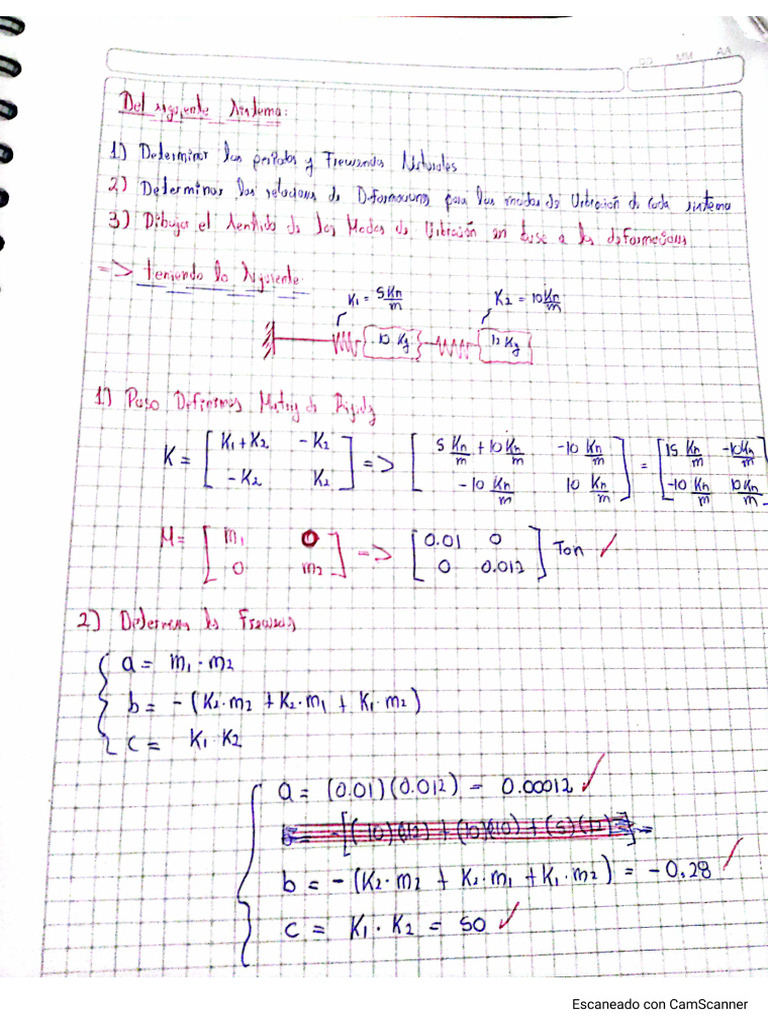 DD MM AA
Del siguiente sistema:
1) Determinar los periodos y Frecuencias Naturales
2) Determinar las relaciones de Deformaciones para los modos de Vibración de cada sistema
3) Dibujar el sentido de los Modos de Vibración en base a las deformaciones
=> teniendo lo siguiente
K1 = 5 Kn/m K2 = 10 Kn/m
10 Kg 12 Kg
1.) Paso Definimos Matriz de Rigidez
K = [K1+K2 -K2; -K2 K2] => [5 Kn/m + 10 Kn/m -10 Kn/m; -10 Kn/m 10 Kn/m] = [15 Kn/m -10 Kn/m; -10 Kn/m 10 Kn/m]
M = [m1 0; 0 m2] => [0.01 0; 0 0.012] Ton ✓
2) Determinar las Frecuencias
a = m1 · m2
b = -(K2·m2 + K2·m1 + K1·m2)
c = K1·K2
a = (0.01)(0.012) = 0.00012 ✓
b = -(K2·m2 + K2·m1 + K1·m2) = -0.28 ✓
c = K1·K2 = 50 ✓
Escaneado con CamScanner